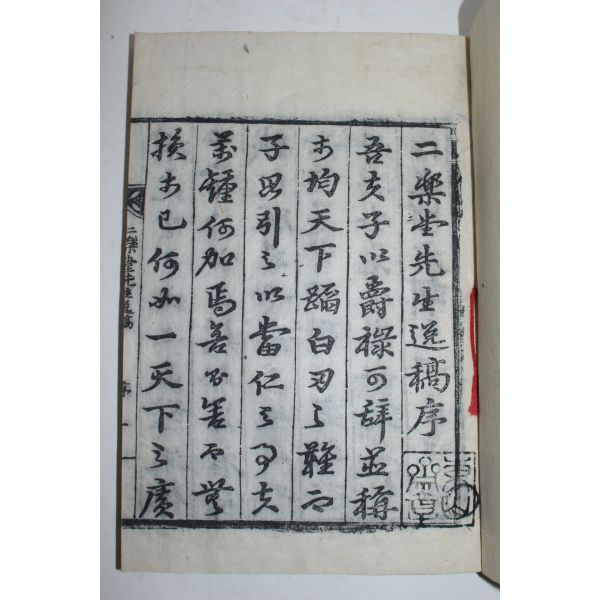 二樂堂先生逸稿序
吾夫子以爵祿可辞並稱
於均天下蹈白刃之難而
子思引之以當仁之事夫
萬鍾何加焉善不善而無
損於己何如一天下之廣
二樂堂先生逸稿 序 一